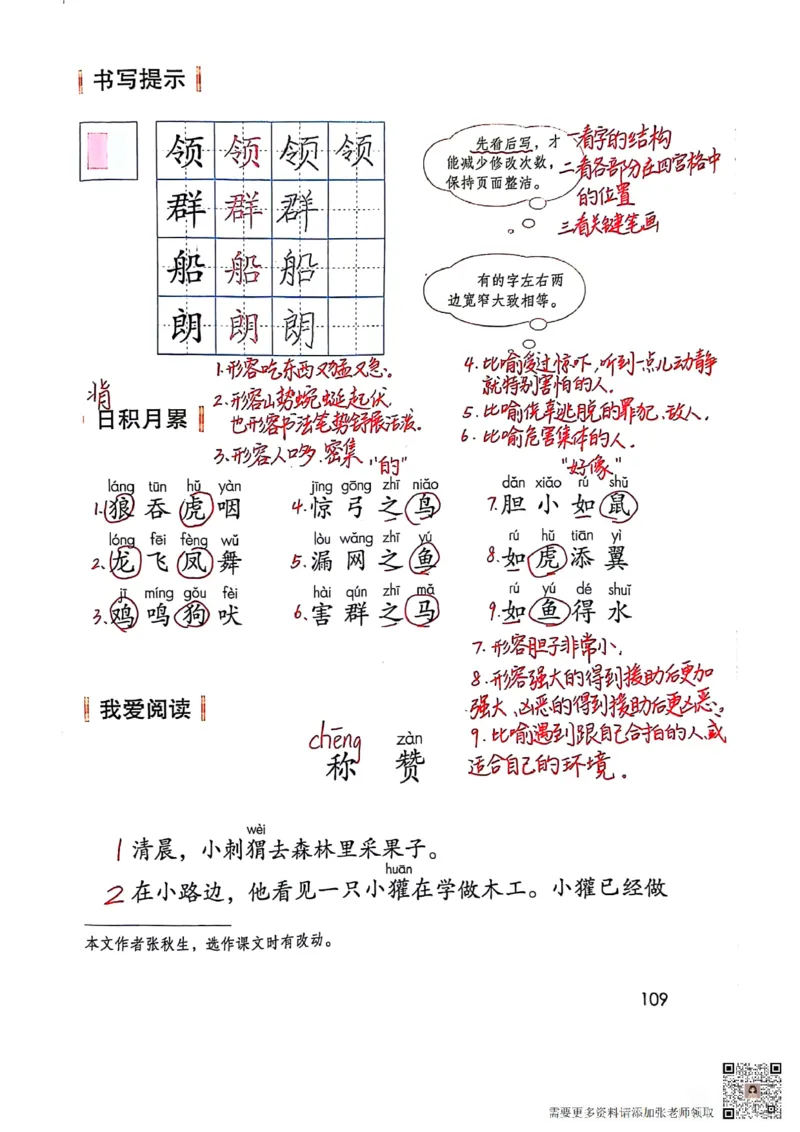 书写提示
领 领 领 领
群 群 群
船 船 船
朗 朗 朗
先看后写，才
能减少修改次数，
保持页面整洁。
一看字的结构
二看各部分在田宫格中
的位置
三看关键笔画
有的字左右两
边宽窄大致相等。
1.形容吃东西又猛又急。
2.形容山势蜿蜒起伏
也形容书法笔势舒展活泼。
3.形容人吵多.密集
4.比喻受过惊吓,听到一点儿动静
就特别害怕的人.
5.比喻侥幸逃脱的罪犯、敌人.
6.比喻危害集体的人.
背
日积月累
"的"
"好像"
láng tūn hǔ yàn
1.狼吞虎咽
jīng gōng zhī niǎo
4.惊弓之鸟
dǎn xiǎo rú shǔ
7.胆小如鼠
lóng fēi fèng wǔ
2.龙飞凤舞
lòu wǎng zhī yú
5.漏网之鱼
rú hǔ tiān yì
8.如虎添翼
jī míng gǒu fèi
3.鸡鸣狗吠
hài qún zhī mǎ
6.害群之马
rú yú dé shuǐ
9.如鱼得水
7.形容胆子非常小.
8.形容强大的得到援助后更加
强大、凶恶的得到援助后更凶恶.
9.比喻遇到跟自己合拍的人或
适合自己的环境.
我爱阅读
chēng zàn
称 赞
wèi
1 清晨，小刺猬去森林里采果子。
huān
2 在小路边，他看见一只小獾在学做木工。小獾已经做
本文作者张秋生，选作课文时有改动。
109
需要更多资料请添加张老师领取